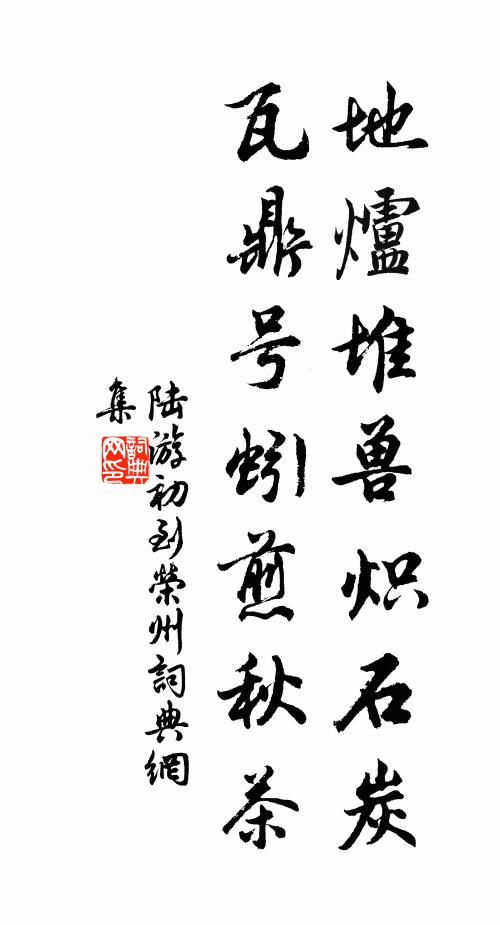 地爐堆兽炽石炭
瓦鼎号蚓煎秋茶
陆游初到榮州詞典網
集
詞典
网印